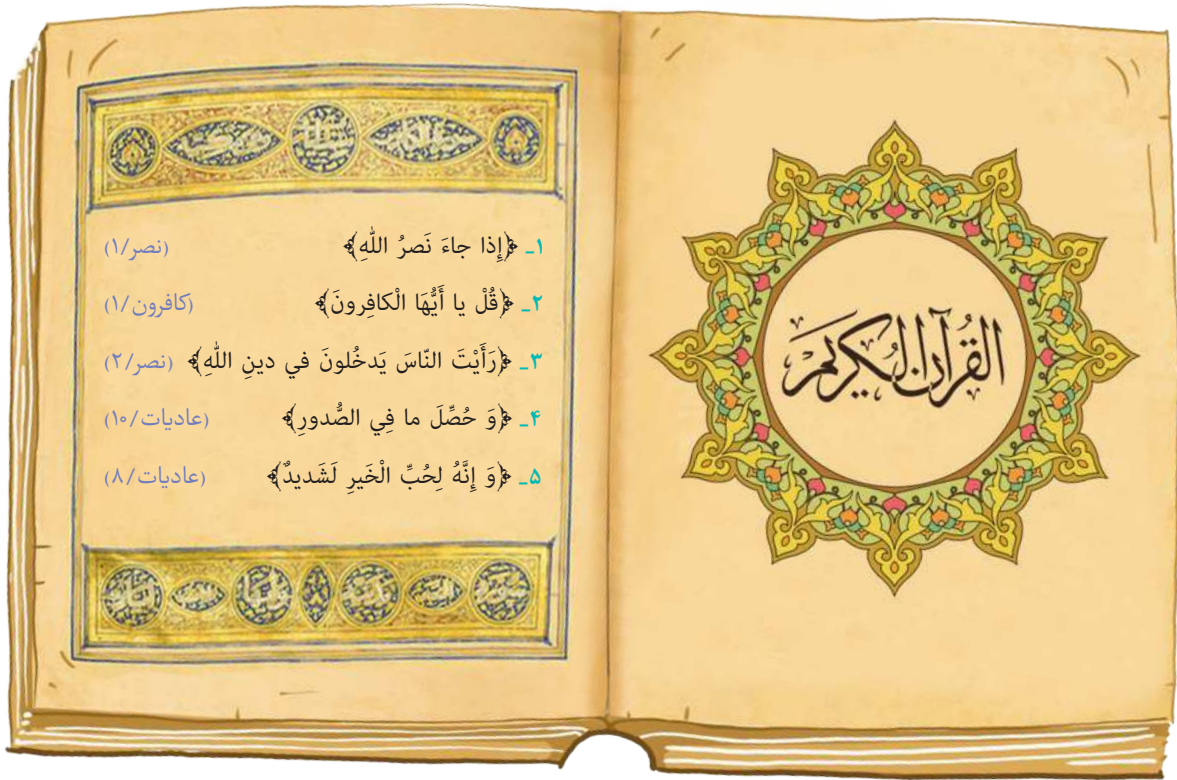 القُرآن الكَريم
۱ـ ﴿إِذا جاءَ نَصرُ اللّٰهِ﴾ (نصر/۱)
۲ـ ﴿قُلْ يا أَيُّهَا الْكافِرونَ﴾ (کافرون/۱)
۳ـ ﴿رَأَيْتَ النّاسَ يَدخُلونَ في دينِ اللّٰهِ﴾ (نصر/۲)
۴ـ ﴿وَ حُصِّلَ ما فِي الصُّدورِ﴾ (عادیات/۱۰)
۵ـ ﴿وَ إِنَّهُ لِحُبِّ الْخَيرِ لَشَديدٌ﴾ (عادیات/۸)